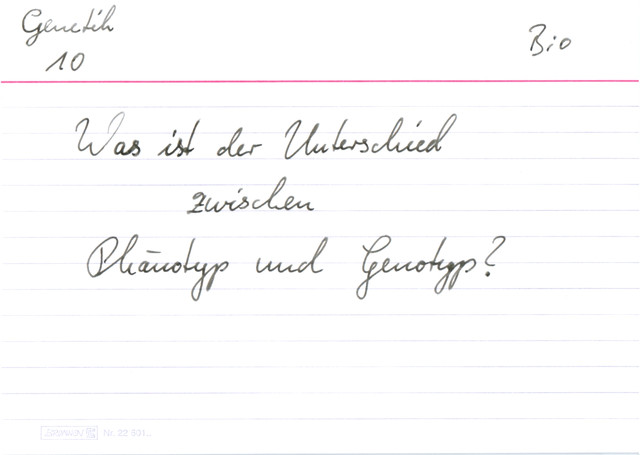 Genetik
Bio
10
Was ist der Unterschied
zwischen
Phänotyp und Genotyp?